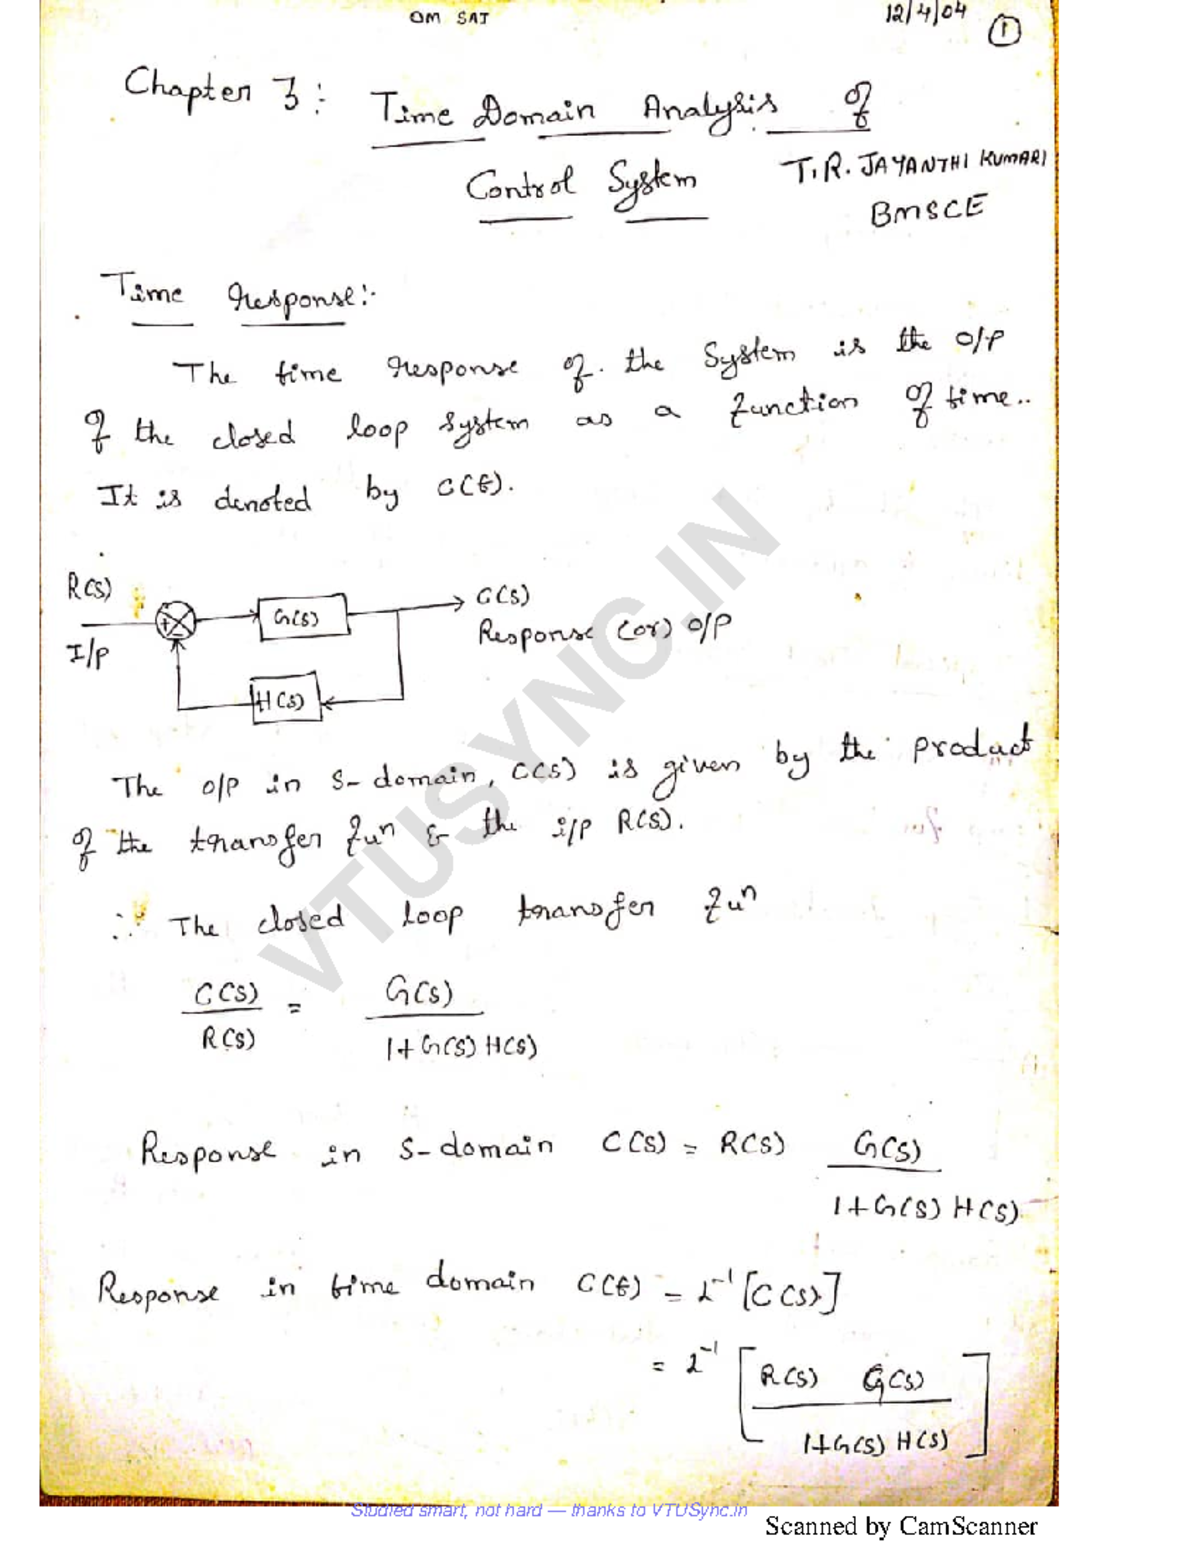 OM SAI
12/4/04
1
Chapter 3: Time Domain Analysis of
Control System
T.R. JAYANTHI KUMARI
BMSCE
Time response:-
The time response of the system is the o/p
of the closed loop system as a function of time..
It is denoted by c(t).
R(s)
I/p
+
-
G(s)
C(s)
Response (or) o/p
H(s)
The o/p in s-domain, C(s) is given by the product
of the transfer funⁿ & the i/p R(s).
∴ The closed loop transfer funⁿ
C(s)/R(s) = G(s)/1+G(s) H(s)
Response in s-domain C(s) = R(s) G(s)/1+G(s) H(s)
Response in time domain c(t) = L⁻¹[C(s)]
= L⁻¹[R(s) G(s)/1+G(s) H(s)]
VTUSYNC.IN
Studied smart, not hard — thanks to VTUSync.in
Scanned by CamScanner